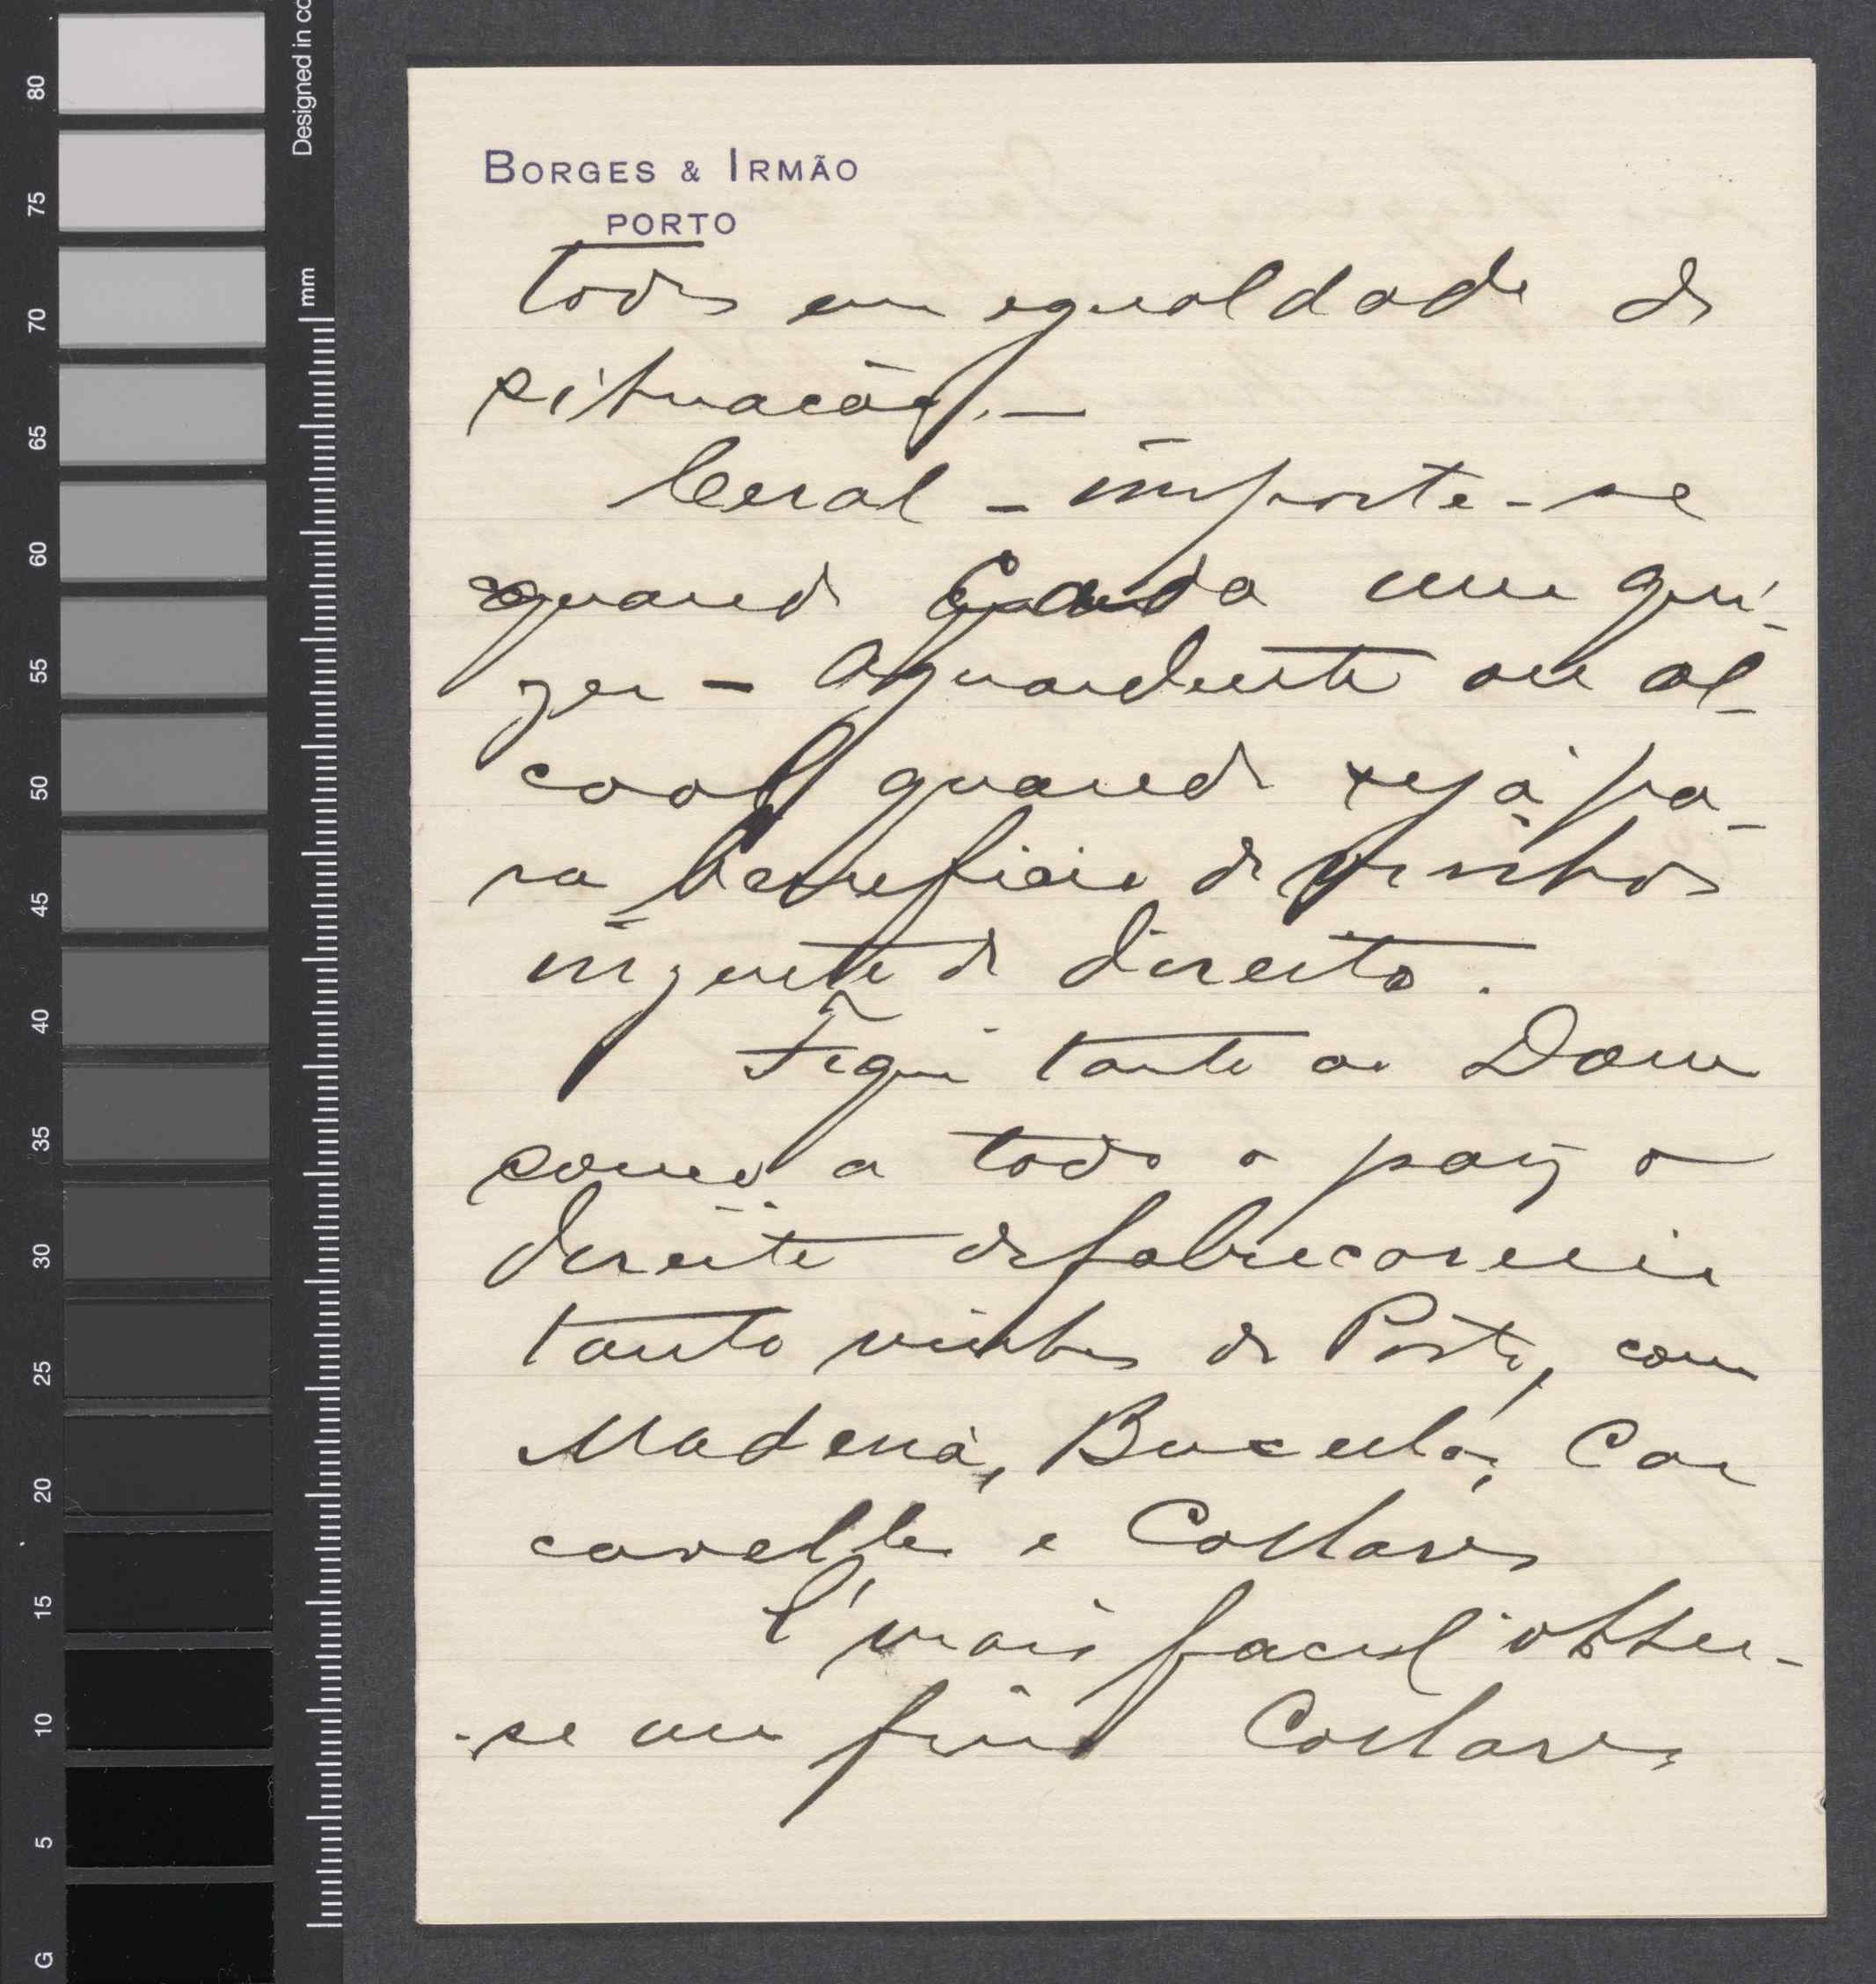 BORGES & IRMÃO
PORTO
todos em egualdade de
situação. —
Cereal - importe-se
quando Cada um qui-
zer - Aguardente ou al-
cool quando seja pa-
ra beneficio de vinhos
izente de direito.
Fique tanto ao Douro
como a todo o paiz o
direito de fabricarem
tanto vinho do Porto, como
Madeira, Bucellas, Car
cavellos e Collares
É mais facil obter-
-se um fino Collares
Designed in
mm
80
75
70
65
60
55
50
45
40
35
30
25
20
15
10
5
G